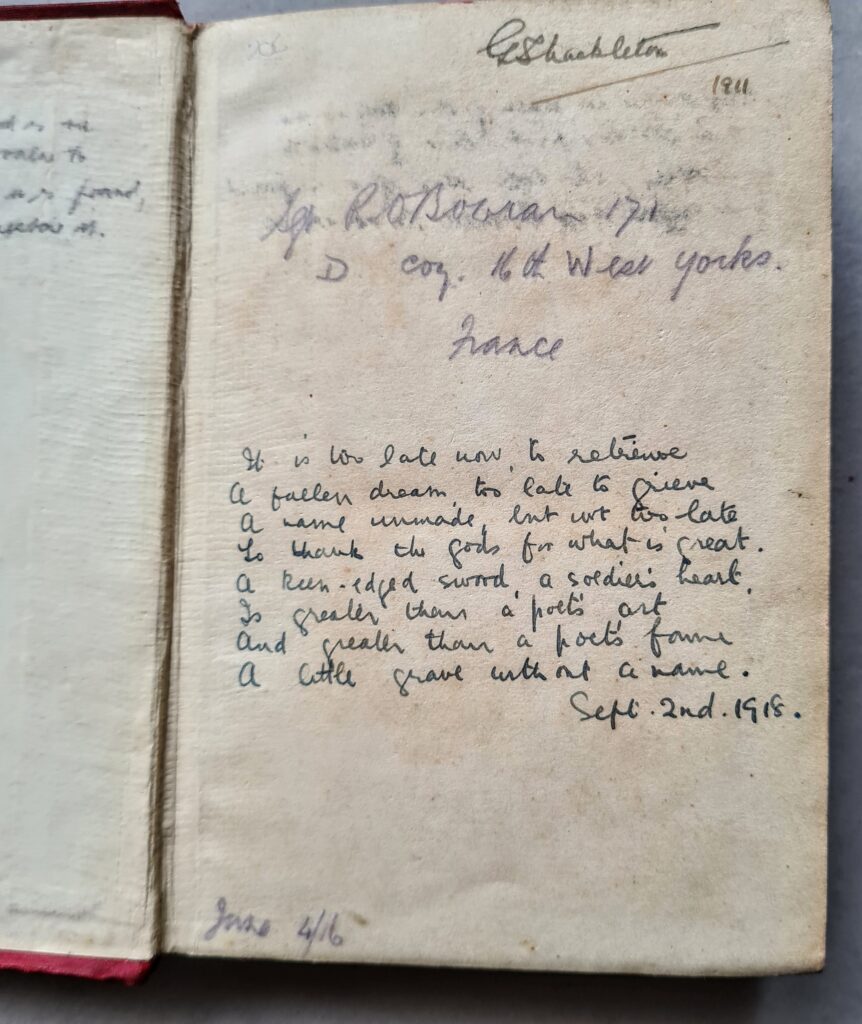 d is
to
found,
it.
206
G Shackleton
1911
Sgt. R O Bowran 171
D coy. 16th West Yorks.
France
It is too late now, to retrieve
A fallen dream, too late to grieve
A name unmade, but not too late
To thank the gods for what is great.
A keen-edged sword, a soldier's heart,
Is greater than a poet's art
And greater than a poet's fame
A little grave without a name.
Sept. 2nd. 1918.
June 4/16